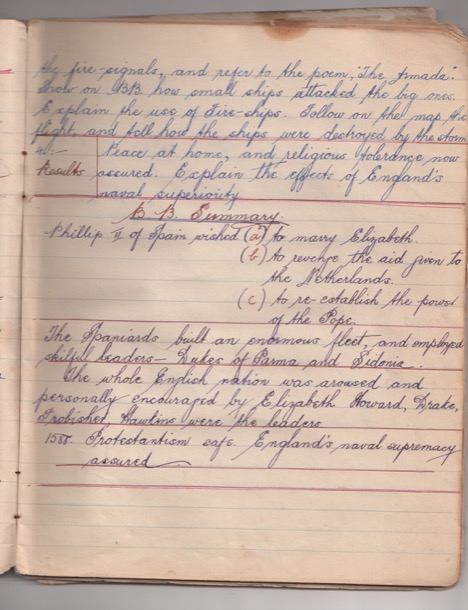 the fire-signals, and refer to the poem, "The Armada".
Show on BB. how small ships attacked the big ones.
Explain the use of Fire-ships. Follow on the map the
flight and tell how the ships were destroyed by the storm
Peace at home, and religious tolerance now
Results assured. Explain the effects of England's
naval superiority
B B. Summary.
Phillip II of Spain wished (a) to marry Elizabeth.
(b) to revenge the aid given to
the Netherlands.
(c) to re-establish the power
of the Pope.
The Spaniards built an enormous fleet, and employed
skilful leaders - Dukes of Parma and Sidonia.
The whole English nation was aroused and
personally encouraged by Elizabeth Howard, Drake,
Frobisher, Hawkins were the leaders
1588 Protestantism safe. England's naval supremacy
assured